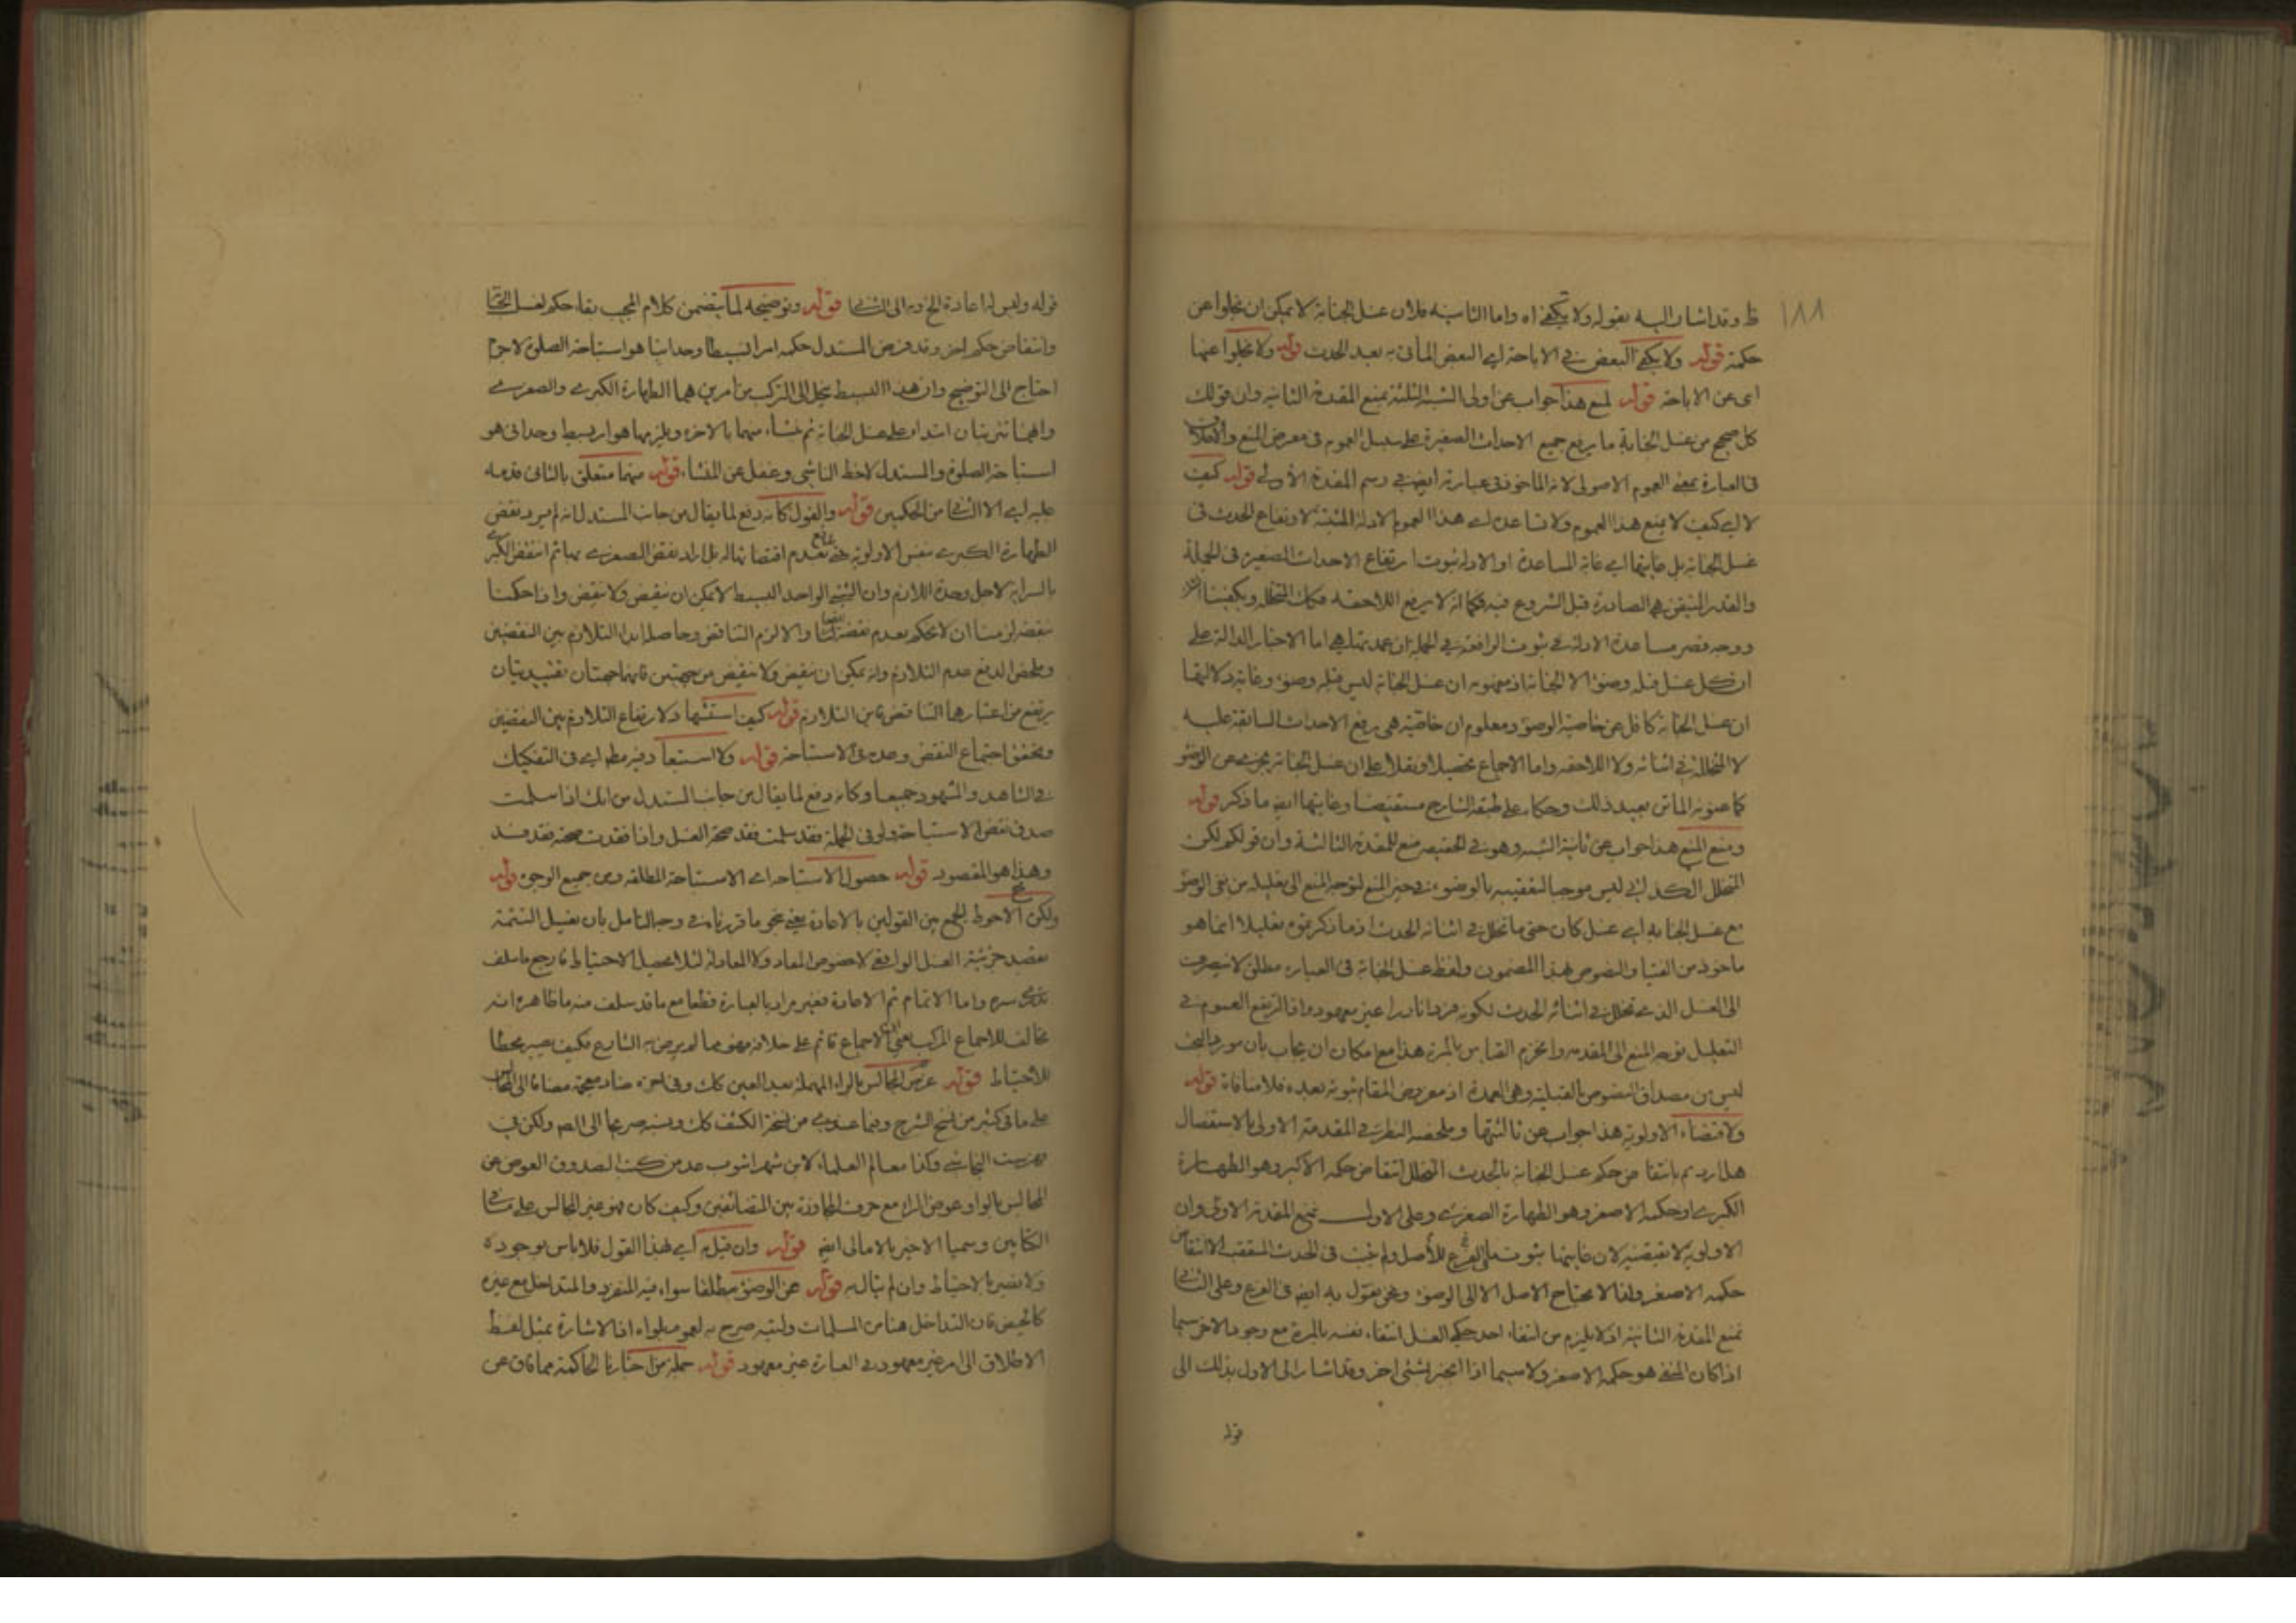 ١٨٨
ظ وقد اشار اليه بقوله ولا يكفي اه واما الثانية فلان غسل الجنابة لا يمكن ان يخلوا عن
حكمة قوله ولا يكفي البعض في الاباحة اي البعض الماتى به بعد الحدث قوله ولا يخلوا عنها
اى عن الاباحة قوله لمنع هذا جواب عن اولى الشبه الثلثة بمنع المقدمة الثانية وان قولك
كل صحيح من غسل الجنابة ما يرفع جميع الاحداث الصغيرة على سبيل العموم فى معرض المنع
فى العبارة بمعنى العموم الاصولى لانه الماخوذ فى عبارته ايض في رسم المقدمة الأولى قوله كيف
لا اي كيف لا يمنع هذا العموم ولا تساعده اي هذا العموم الادلة المثبتة لارتفاع الحدث فى
غسل الجنابة بل غايتها اي غاية المساعدة او الادلة ثبوت ارتفاع الاحداث الصغيرة فى الجملة
والقدر المتيقن هي الصادرة قبل الشروع فيه فكما انه لا يرفع اللاحقه فكذا المتخلله ويكفينا
ووجه قصر مساعدة الادلة على ثبوت الرافعية في الجملة ان عمدتها هي اما الاخبار الدالة على
ان كل غسل قبله وضوء الا الجنابة اذ مفهومه ان غسل الجنابة ليس قبله وضوء وغاية دلالتها
ان غسل الجنابة كافل عن خاصية الوضوء ومعلوم ان خاصيته هى رفع الاحداث السابقة عليه
لا المتخللة في اثنائه ولا اللاحقه واما الاجماع تحصيلا ونقلا على ان غسل الجنابة يجزى عن الوضوء
كما عنونه الماتن بعيد ذلك وحكاه على طبقه الشارح مستفيضا وغايتها ايض ما ذكر قوله
ومنع المنع هذا جواب عن ثانية الشبه وهو في الحقيقه منع للمقدمة الثالثة وان قولكم لكن
المتخلل الكذائي ليس موجبا لتعقيبه بالوضوء في حيز المنع لتوجه المنع الى تعليله من نفى الوضوء
مع غسل الجنابة اي غسل كان حتى ما تخلل في اثنائه الحدث اذ ما ذكرتموه تعليلا انما هو
ماخوذ من الفتيا والنصوص بهذا المضمون ولفظ غسل الجنابة فى العبارة مطلق لا ينصرف
الى الغسل الذى تخلل في اثنائه الحدث لكونه فردا نادرا غير معهود واذا ارتفع العموم في
التعليل توجه المنع الى المقدمه وانخزم القياس بالمرة هذا مع امكان ان يجاب بان مورد البحث
ليس من مصداق النصوص بالقبلية وهى العمدة اذ معروض المقام ثبوته بعده فلا منافاة قوله
ولاقتضاء الاولوية هذا جواب عن ثالثتها وملخصه النظر في المقدمة الاولى بالاستفصال
هل اردتم بانتقاض حكم غسل الجنابة بالحدث المتخلل انتقاض حكمه الاكبر وهو الطهارة
الكبرى او حكمه الاصغر وهو الطهارة الصغرى وعلى الاول نمنع المقدمة الاولى وان
الاولوية لا تقتضيه لان غايتها ثبوت ما للفرع للأصل ولم يثبت فى الحدث المتعقب الا انتقاض
حكمه الاصغر ولذا لا يحتاج الاصل الا الى الوضوء ونحن نقول به ايض فى الفرع وعلى الثاني
نمنع المقدمة الثانية اذ لا يلزم من انتفاء احد حكمي الغسل انتفاء نفسه بالمرة مع وجود الاخر سيما
اذا كان المنفي هو حكمه الاصغر ولا سيما اذا انجبر بشئ اخر وقد اشار الى الاول بذلك الى
قوله
قوله وليس له اعادة الخ وبه الى الثاني قوله وتوضيحه لما يتضمن كلام المجيب بقاء حكم لغسل الجنابة
وانتقاض حكم اخر وقد فرض المستدل حكمه امرا بسيطا وحدانيا هو استباحة الصلوة لاجرم
احتاج الى التوضيح وان هذا البسيط ينحل الى التركب من امرين هما الطهارة الكبرى والصغرى
وانهما تترتبان ابتداء على غسل الجنابة ثم ينشاء منهما بالاخرة ويلزمهما هو امر بسيط وحدانى هو
استباحة الصلوة والمستدل لاحظ الناشى وغفل عن المنشاء قوله منهما متعلق بالثانى قدمه
عليه اي الا الثاني من الحكمين قوله والقول كانه دفع لما يقال من جانب المستدل انه لم يرد بنقض
الطهارة الكبرى بنفس الاولوية حتى يمنع بعدم اقتضائها له بل اراد نقض الصغرى بها ثم انتقض الكبرى
بالسراية لاجل وحدة اللازم وان الشئ الواحد البسيط لا يمكن ان ينقض ولا ينقض واذا حكمنا
بنقضه لزمنا ان لا نحكم بعدم نقضه ايضا والا لزم التناقض وحاصله ابداء التلازم بين النقضين
وملخص الدفع عدم التلازم وانه يمكن ان ينقض ولا ينقض من جهتين فانهما جهتان تقييديتان
يرتفع من اعتبارهما التناقض فاين التلازم قوله كيف استثنها ولا ارتفاع التلازم بين النقضين
وتحقق اجتماع النقض وعدمه في الاستباحة قوله ولا استبعاد فيه مطه اي فى التفكيك
في الشاهد والمشهود جميعا وكانه دفع لما يقال من جانب المستدل من انك اذا سلمت
صدق نقض الاستباحة ولو فى الجملة فقد سلمت فقد صحة الغسل واذا فقدت صحته فقد فسد
وهذا هو المقصود قوله حصول الاستباحة اي الاستباحة المطلقه ومن جميع الوجوه قوله
ولكن الاحوط الجمع بين القولين بالاعادة يعنى بنحو ما قررناه في وجه التامل بان يغسل التتمة
بقصد جزئية الغسل الواقعي لا خصوص المعاد ولا المعاد له لئلا يحصل الاحتياط فارجع ما سلف
تدرى سره واما الاتمام ثم الاعادة فغير مراد بالعبارة قطعا مع ما قد سلف منه ما ظاهره انه
مخالف للاجماع المركب يعني ان الاجماع قائم على خلافه فهو مما لم يرض به الشارع فكيف يصير محطا
للأحتياط قوله عرض المجالس بالراء المهملة بعد العين كك وفى اخره ضاد معجمة مضافا الى المجالس
على ما فى كثير من نسخ الشرح وفيما عندى من نسخة الكشف كك ونسبه صريحا الى الصه ولكن في
فهرست النجاشي وكذا معالم العلماء لابن شهراشوب عد من كتب الصدوق العوض عن
المجالس بالواو عوض الراء مع حرف المجاوزة بين المتضائفين وكيف كان فهو غير المجالس على ما في
الكتابين وسميا الاخير بالامالى ايض قوله وان قيل به اي بهذا القول فلا باس بوجوده
ولا نضير بالاحتياط وان لم نبال به قوله عن الوضوء مطلقا سواء فيه المنفرد والمتداخل مع غيره
كالحيض فان التداخل هنا من المسلمات ولنبه صرح به لعموم ما سواه اذ الاشارة بمثل لفظ
الاطلاق الى امر غير معهود في العبارة غير معهود قوله جملة من اخبارنا الحاكمة مما فاق عن